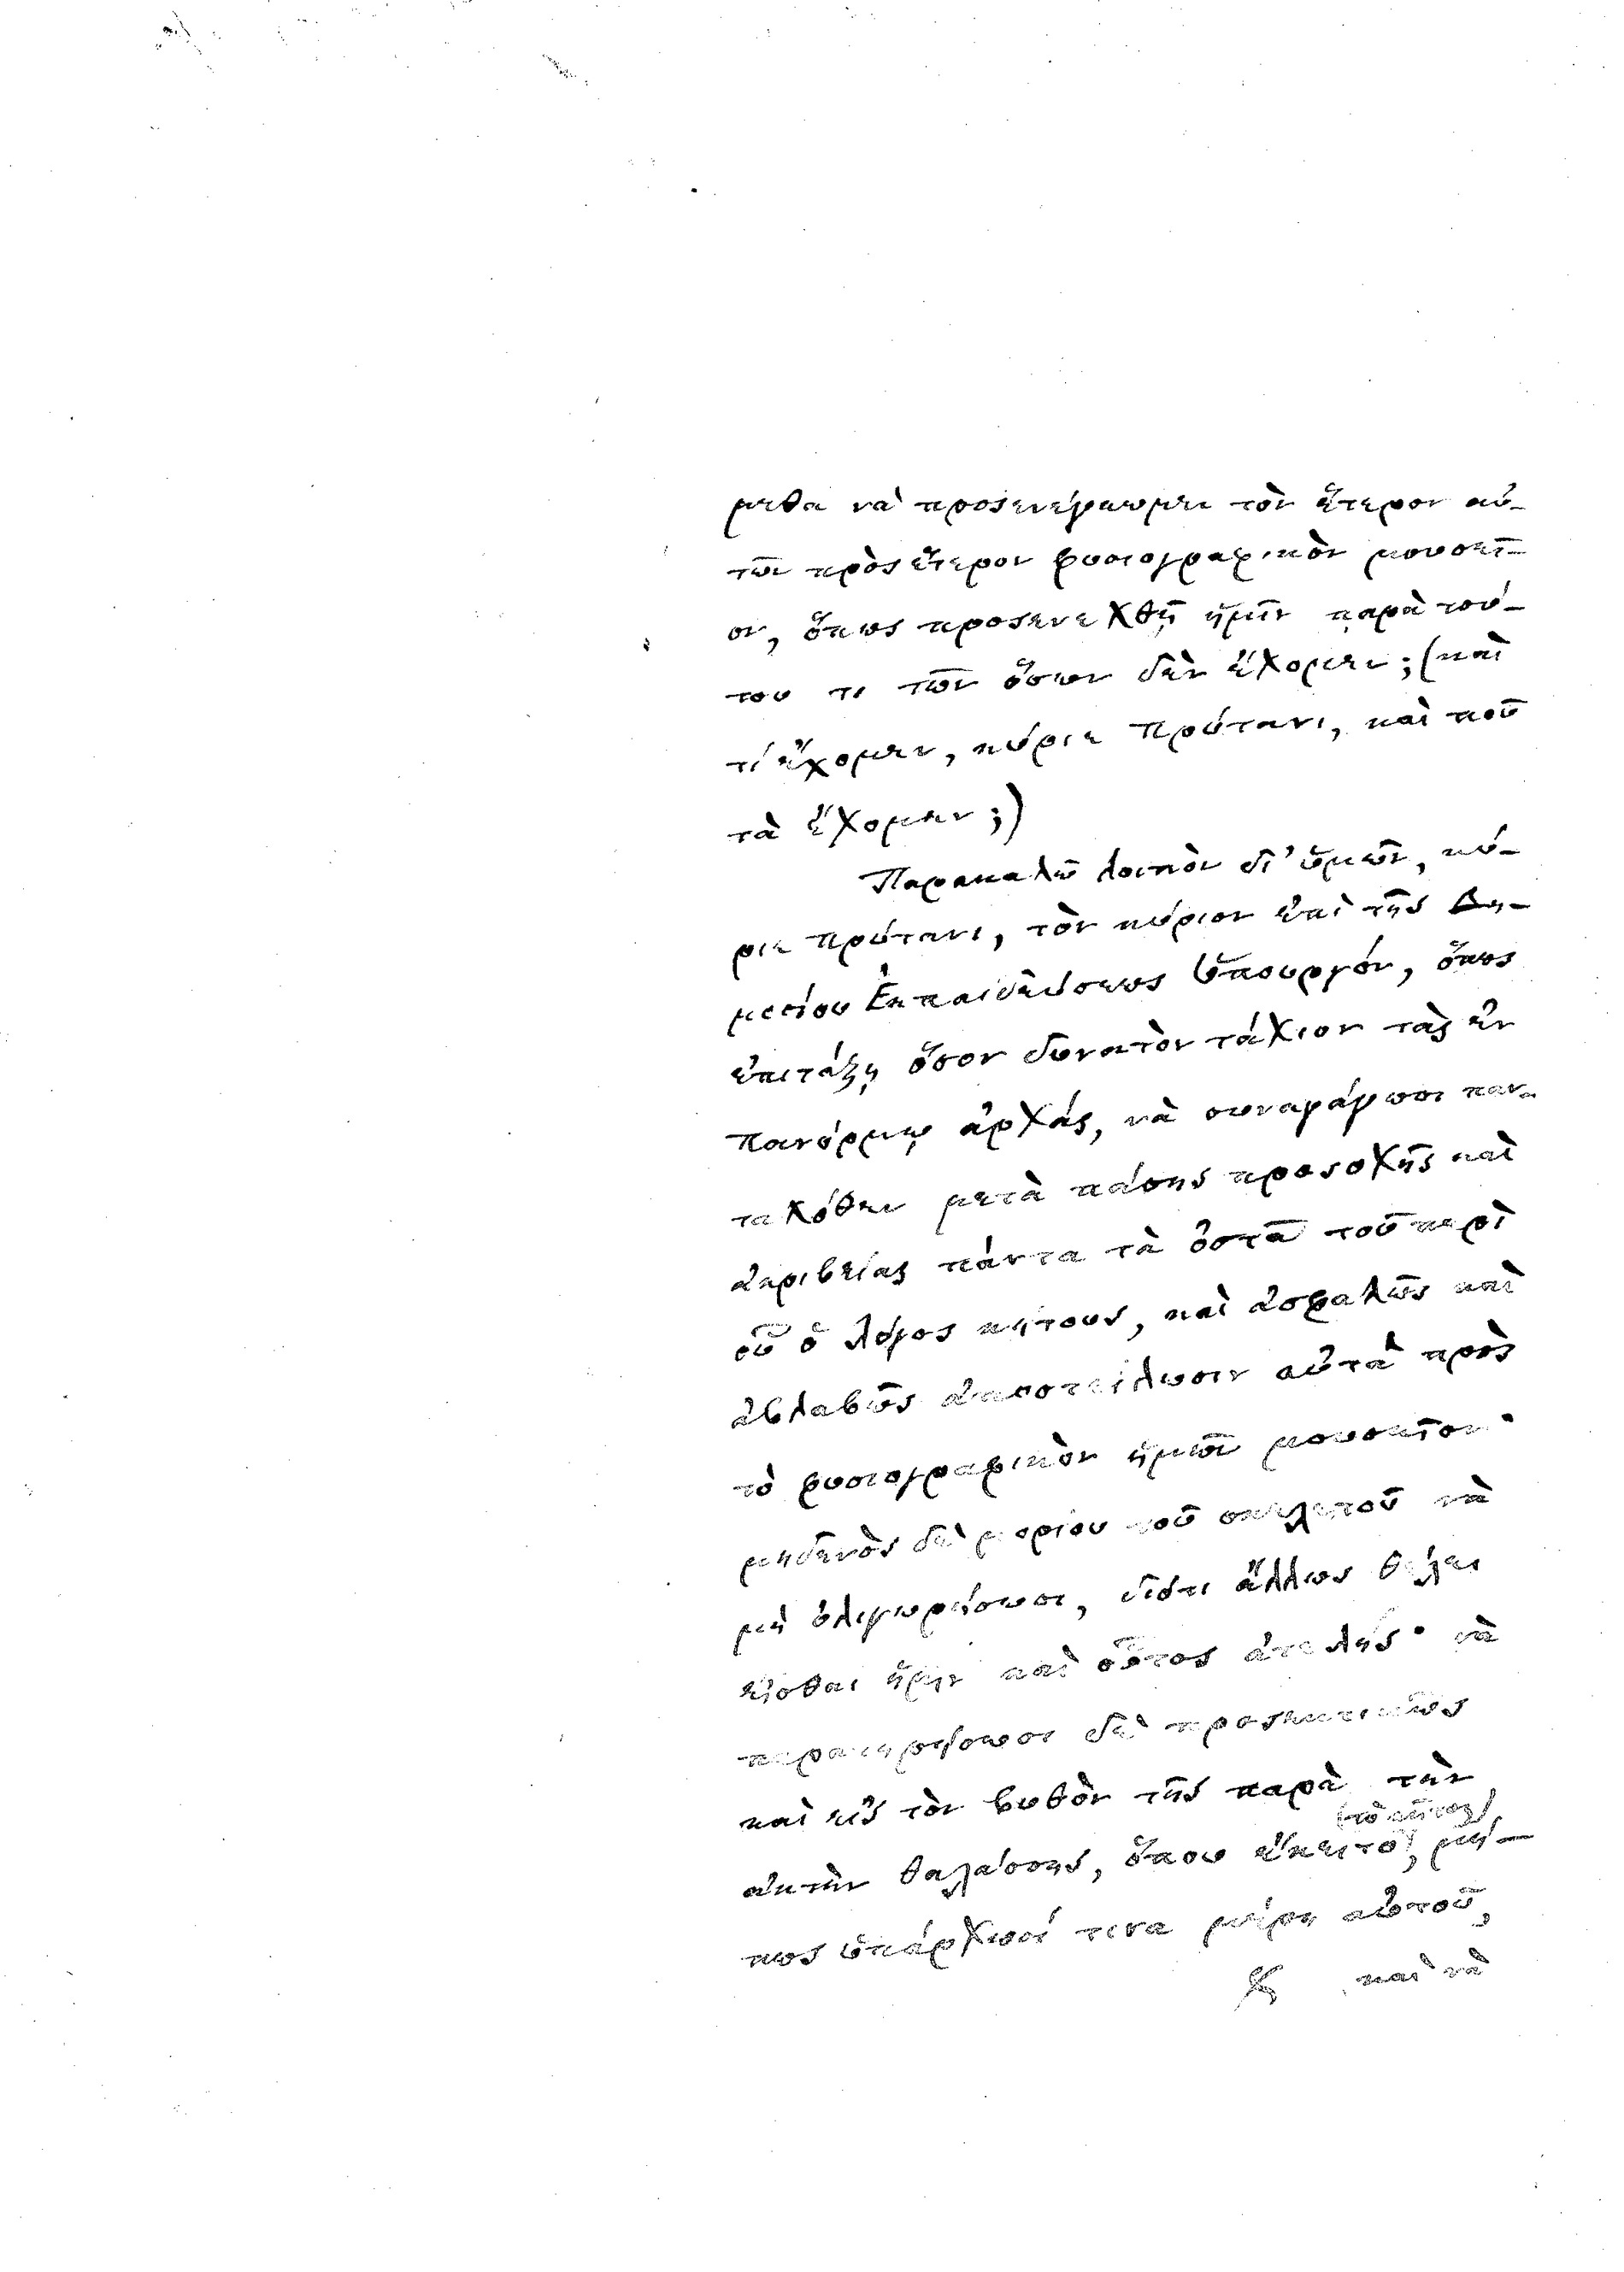 μεθα νὰ προσενέγκωμεν τὸν ἕτερον αὐ-
τῶν πρὸς ἕτερον φυσιογραφικὸν μουσεῖ-
ον, ὅπως προσενεχθῇ ἡμῖν παρὰ τού-
του τι τῶν ὅσων δὲν ἔχομεν; (καὶ
τί ἔχομεν, κύριε Πρύτανι, καὶ ποῦ
τὰ ἔχομεν;)
Παρακαλῶ λοιπὸν δι' ὑμῶν, κύ-
ριε Πρύτανι, τὸν κύριον ἐπὶ τῆς Δη-
μοσίου Ἐκπαιδεύσεως Ὑπουργόν, ὅπως
ἐπιτάξῃ ὅσον δυνατὸν τάχιον τὰς ἐν
Πανόρμῳ ἀρχάς, νὰ συναγάγωσι παν-
ταχόθεν μετὰ πάσης προσοχῆς καὶ
ἀκριβείας πάντα τὰ ὀστᾶ τοῦ περὶ
οὗ ὁ λόγος κήτους, καὶ ἀσφαλῶς καὶ
ἀβλαβῶς ἀποστείλωσιν αὐτὰ πρὸς
τὸ φυσιογραφικὸν ἡμῶν μουσεῖον·
μηδενὸς δὲ μορίου τοῦ σκελετοῦ νὰ
μὴ ὀλιγωρήσωσι, διότι ἄλλως θέλει
εἶσθαι ἡμῖν καὶ οὗτος ἀτελής· νὰ
παρατηρήσωσι δὲ προσεκτικῶς
καὶ εἰς τὸν βυθὸν τῆς παρὰ τὴν
(τὸ κῆτος)
ἀκτὴν θαλάσσης, ὅπου ἔκειτο, μή-
πως ὑπάρχωσί τινα μέρη αὐτοῦ,
καὶ νὰ